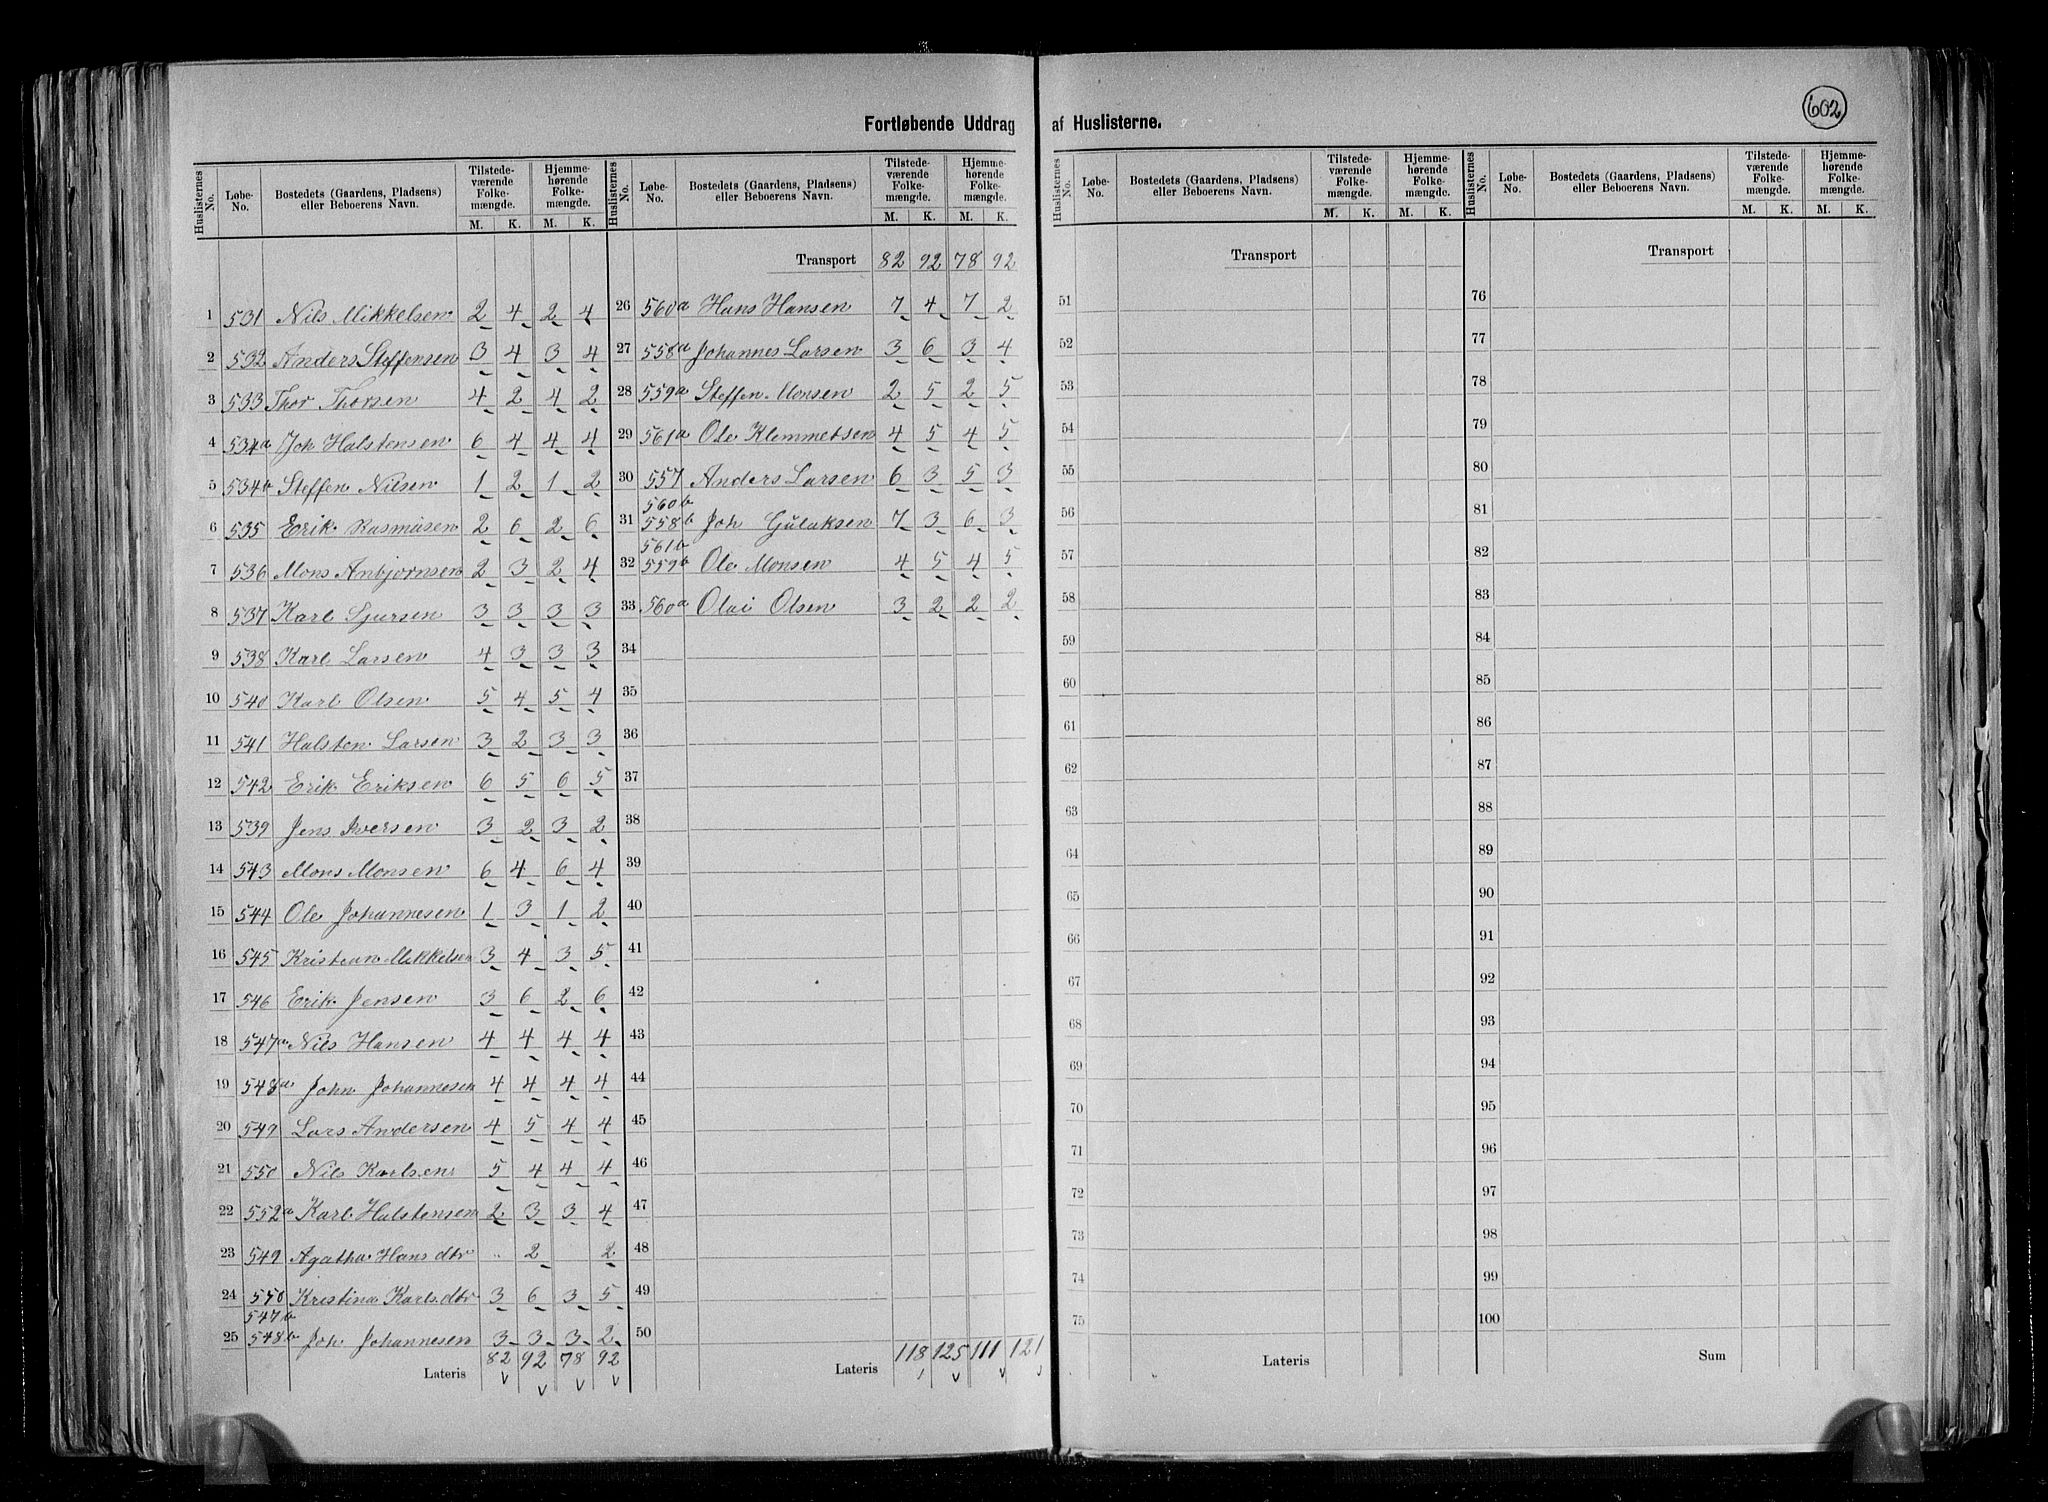 602
Fortløbende Uddrag af Huslisterne.
Huslisternes No. Løbe-No. Bostedets (Gaardens, Pladsens) eller Beboerens Navn. Tilstedeværende Folkemængde. M. K. Hjemmehørende Folkemængde. M. K.
1 531 Nils Mikkelsen 2 4 2 4
2 532 Anders Steffensen 3 4 3 4
3 533 Thor Thorsen 4 2 4 2
4 534a Joh Halstensen 6 4 4 4
5 534b Steffen Nilsen 1 2 1 2
6 535 Erik Rasmusen 2 6 2 6
7 536 Mons Anbjørnsen 2 3 2 4
8 537 Karl Sjursen 3 3 3 3
9 538 Karl Larsen 4 3 3 3
10 540 Karl Olsen 5 4 5 4
11 541 Halsten Larsen 3 2 3 3
12 542 Erik Eriksen 6 5 6 5
13 539 Jens Iversen 3 2 3 2
14 543 Mons Monsen 6 4 6 4
15 544 Ole Johannesen 1 3 1 2
16 545 Kristian Mikkelsen 3 4 3 5
17 546 Erik Jensen 3 6 2 6
18 547a Nils Hansen 4 4 4 4
19 548a John Johannesen 4 4 4 4
20 549 Lars Andersen 4 5 4 4
21 550 Nils Karlsen 5 4 4 4
22 552a Karl Halstensen 2 3 3 4
23 549 Agatha Hansdtr .. 2 2
24 570 Kristina Karlsdtr 3 6 3 5
547b
25 548b Joh Johannesen 3 3 3 2
Lateris 82 92 78 92
Huslisternes No. Løbe-No. Bostedets (Gaardens, Pladsens) eller Beboerens Navn. Tilstedeværende Folkemængde. M. K. Hjemmehørende Folkemængde. M. K.
Transport 82 92 78 92
26 560a Hans Hansen 7 4 7 2
27 558a Johannes Larsen 3 6 3 4
28 559a Steffen Monsen 2 5 2 5
29 561a Ole Klemmetsen 4 5 4 5
30 557 Anders Larsen 6 3 5 3
560b
31 558b Joh Gulaksen 7 3 6 3
561b
32 559b Ole Monsen 4 5 4 5
33 560a Olai Olsen 3 2 2 2
34
35
36
37
38
39
40
41
42
43
44
45
46
47
48
49
50
Lateris 118 125 111 121
Huslisternes No. Løbe-No. Bostedets (Gaardens, Pladsens) eller Beboerens Navn. Tilstedeværende Folkemængde. M. K. Hjemmehørende Folkemængde. M. K.
Transport
51
52
53
54
55
56
57
58
59
60
61
62
63
64
65
66
67
68
69
70
71
72
73
74
75
Lateris
Huslisternes No. Løbe-No. Bostedets (Gaardens, Pladsens) eller Beboerens Navn. Tilstedeværende Folkemængde. M. K. Hjemmehørende Folkemængde. M. K.
Transport
76
77
78
79
80
81
82
83
84
85
86
87
88
89
90
91
92
93
94
95
96
97
98
99
100
Sum